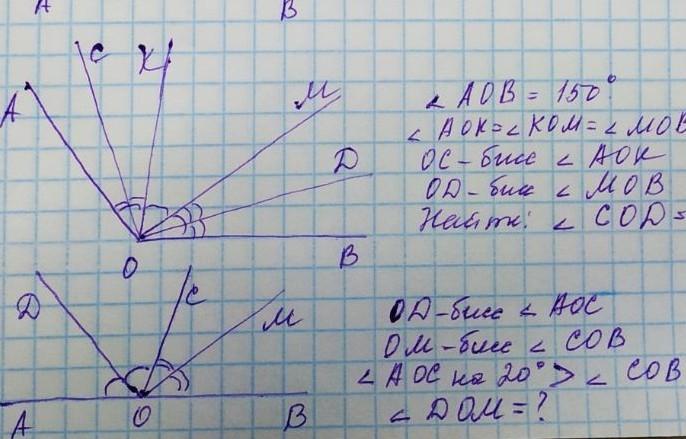 A B
C K
A
M
D
O B
∠ AOB = 150°
∠ AOK = ∠ KOM = ∠ MOB
OC - бисс ∠ AOK
OD - бисс ∠ MOB
Найти: ∠ COD =
D
C
M
A O B
OD - бисс ∠ AOC
OM - бисс ∠ COB
∠ AOC на 20° > ∠ COB
∠ DOM = ?